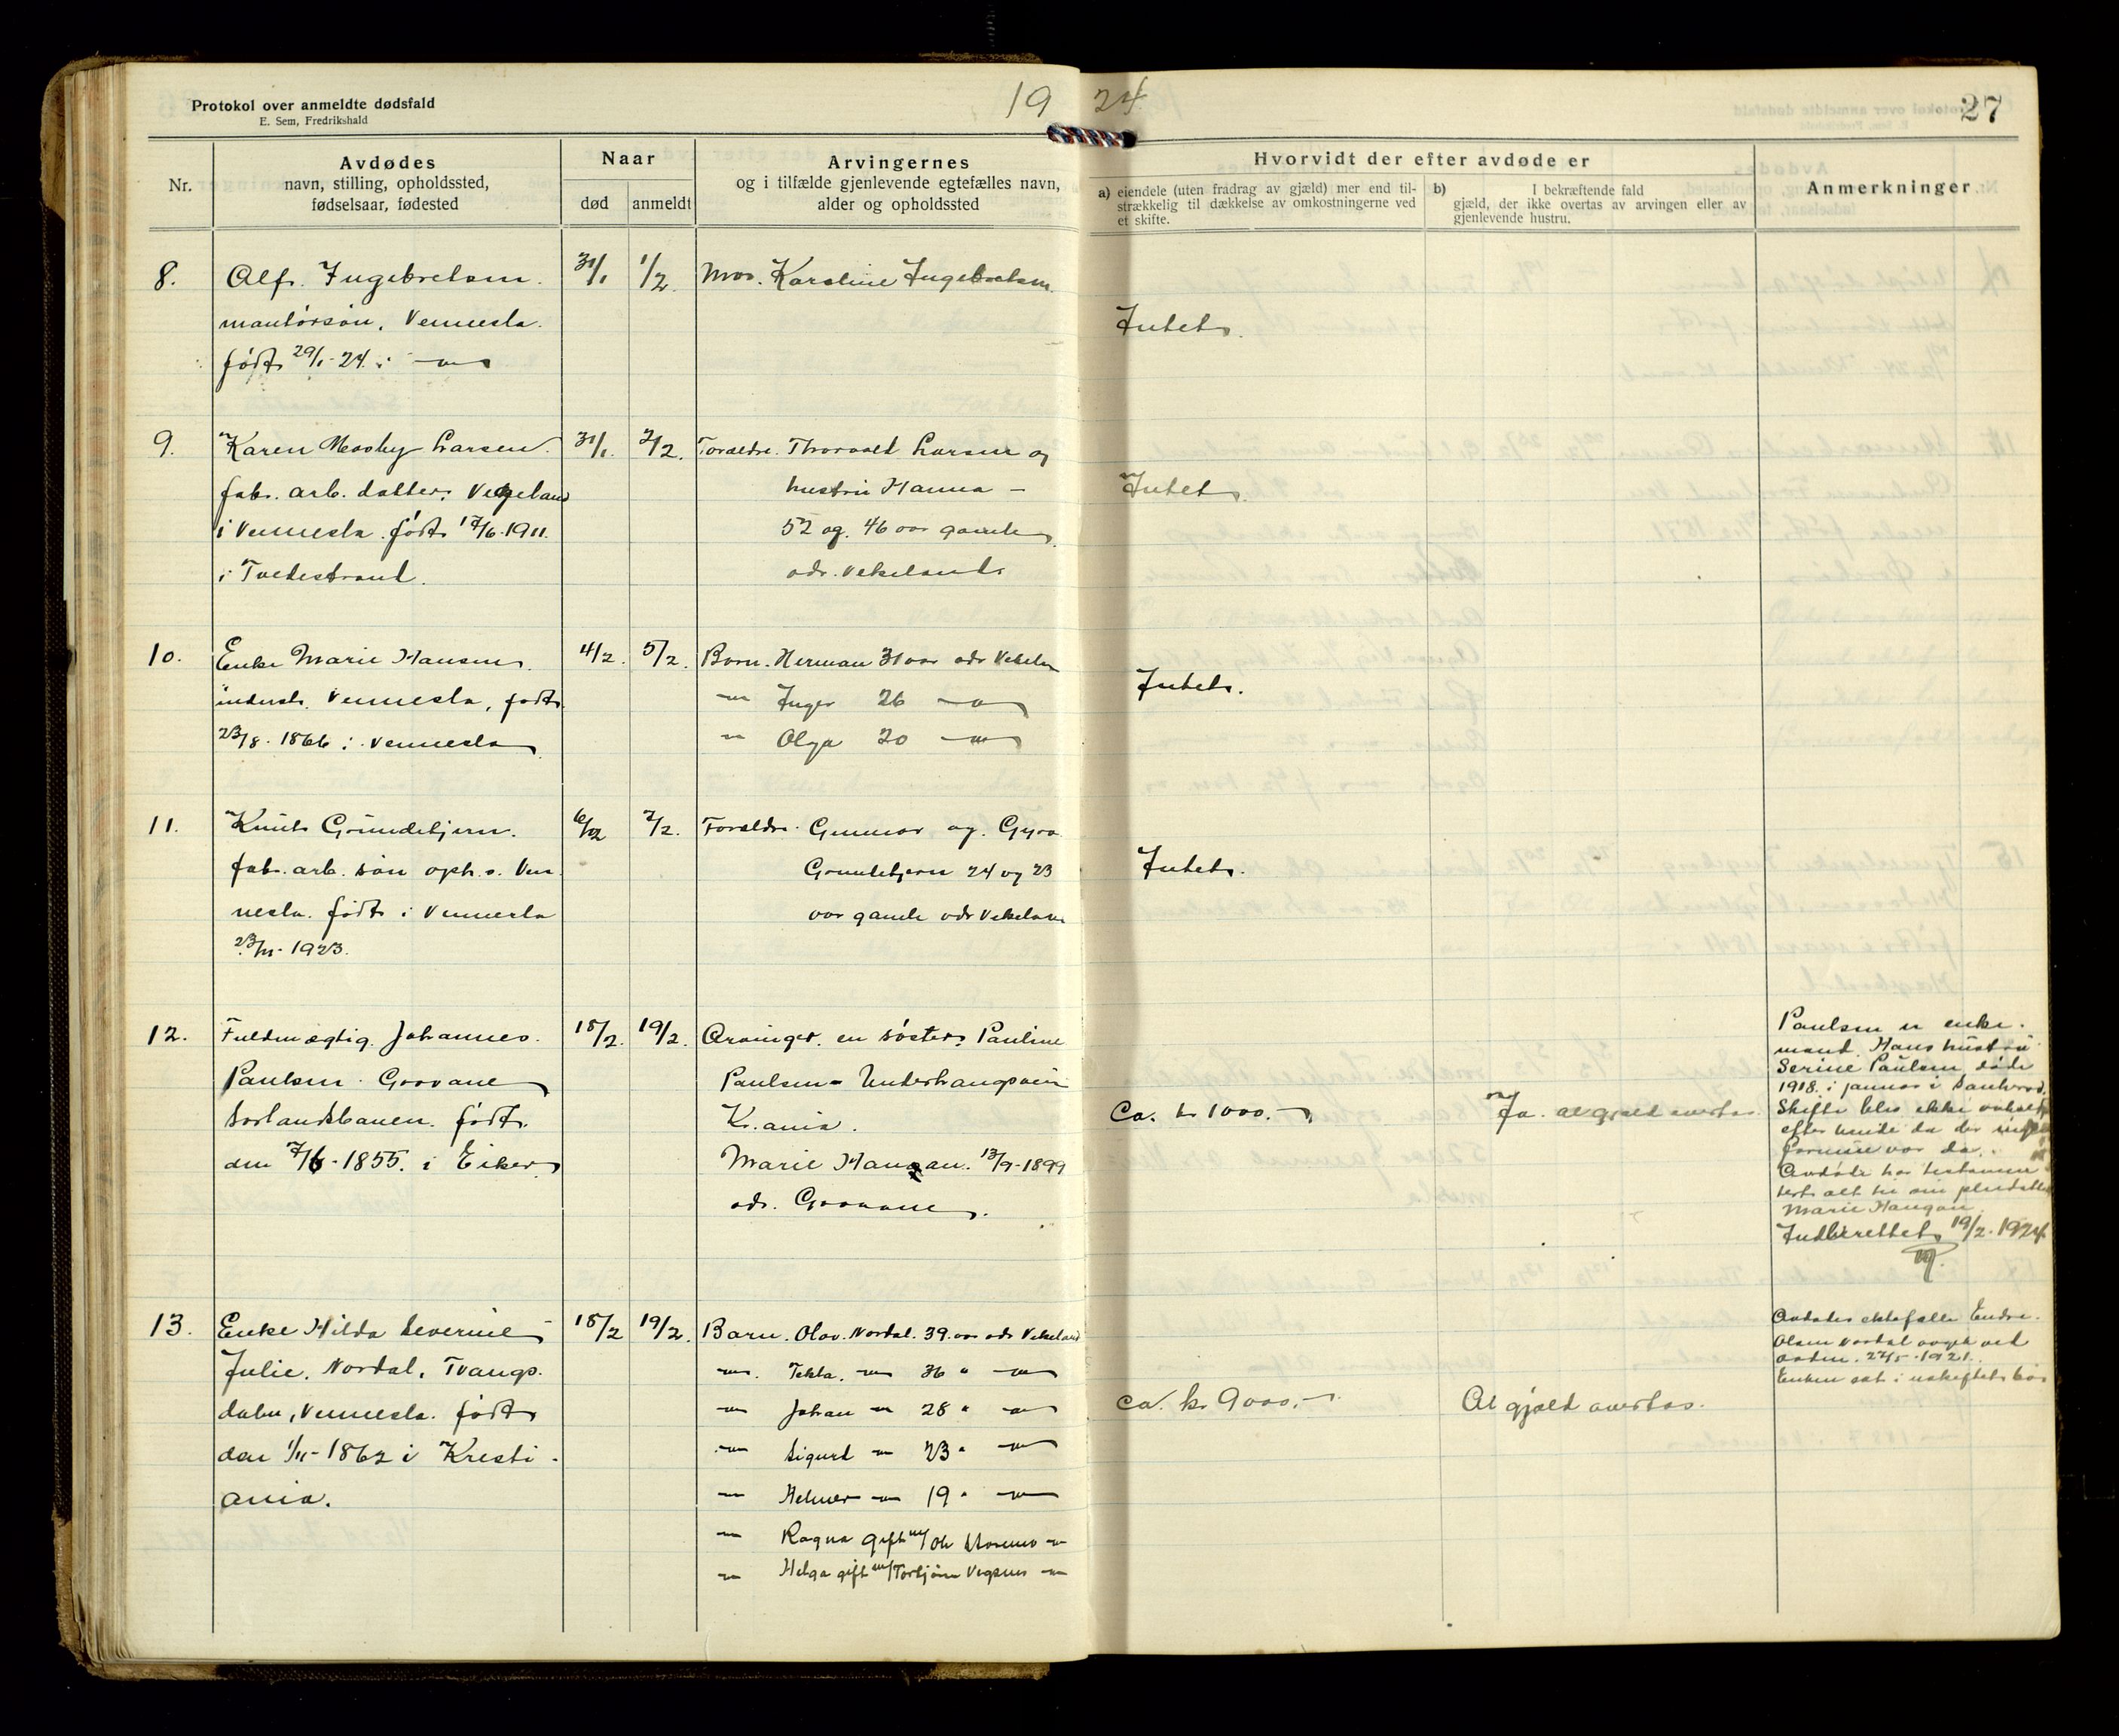 Protokol over anmeldte dødsfald
E. Sem, Fredrikshald
19 24
27
Nr.
Avdødes
navn, stilling, opholdssted,
fødselsaar, fødested
Naar
død
anmeldt
Arvingernes
og i tilfælde gjenlevende egtefælles navn,
alder og opholdssted
Hvorvidt der efter avdøde er
a) eiendele (uten fradrag av gjæld) mer end til-
strækkelig til dækkelse av omkostningerne ved
et skifte.
b) I bekræftende fald
gjæld, der ikke overtas av arvingen eller av
gjenlevende hustru.
Anmerkninger
8.
Alf. Ingebretsen.
montørsøn, Vennesla.
født 29/1-24 i —"—
31/1
1/2.
Mor. Karoline Ingebretsen.
Intet.
9.
Karen Mosby Larsen.
fab. arb. datter. Vegeland
i Vennesla. født 17/6-1911.
i Tvedestrand.
31/1.
2/2.
Foreldre. Thorvald Larsen og
hustru Hanna —
52 og 46 aar gamle
adr. Vekeland.
Intet.
10.
Enke Marie Hansen.
inderst. Vennesla, født
23/8-1866 i Vennesla
4/2.
5/2.
Barn. Herman 31 aar adr Vekelan
—"— Inger 26 —"—
—"— Olga 20 —"—
Intet.
11.
Knut Grundetjern.
fab. arb. søn oph. s. Ven
nesla. født i Vennesla
1923.
6/2
7/2.
Foreldre. Gunnar og Gyro
Grundetjern 24 og 23
aar gamle adr Vekelan
Intet.
12.
Fuldmægtig. Johannes.
Paulsen. Grovane
Sørlandsbanen. født.
den 7/6-1855. i Eiker
18/2.
19/2.
Arvinger. en søster. Pauline
Paulsen - Underhaugsvei
Kr.ania.
Marie Haugan. 13/9-1899
adr. Grovane.
Ca. kr 1000.—
Ja. al gjæld overtas.
Paulsen er enke.
mand. Hans hustru
Serine Paulsen døde
1918. i januar i
Skifte blev ikke avholdt
efter hende da der ingen
formue var da.
Avdøde har testamen
tert alt til sin pleidatter
Marie Haugan
Indberettet 19/2-1924
13.
Enke Hilda Severine
Julie. Nordal. Tvangs.
dalen, Vennesla. født
den 1/11-1862 i Kristi-
ania.
18/2
19/2.
Barn. Olav. Nordal. 39. aar adr Vekeland
—"—. Tekla. —"— 36 " —"—
—"— Johan —"— 28 " —"—
—"— Sigurd —"— 23 " —"—
—"— Helmer —"— 19 " —"—
—"— Ragna gift m/ Ole —"—
—"— Helga gift m/ Torbjørn —"—
Ca. kr 9000.—
Al gjæld overtas.
Avdødes ektefælle Endre.
Olsen Nordal avgik ved
døden. 27/5-1921.
Enken sat i uskiftet bo